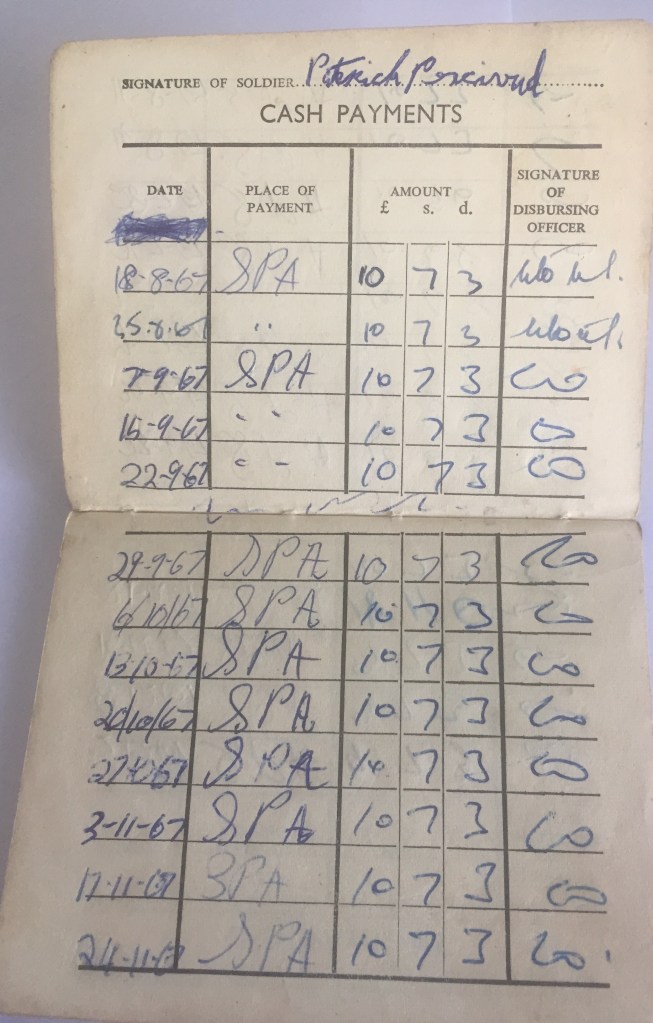 SIGNATURE OF SOLDIER
CASH PAYMENTS
DATE PLACE OF PAYMENT AMOUNT £ s. d. SIGNATURE OF DISBURSING OFFICER
18-8-67 SPA 10 7 3
25.8.67 " 10 7 3
SPA 10 7 3
15-9-67 " " 10 7 3
22-9-67 " - 10 7 3
29-9-67 SPA 10 7 3
6/10/67 SPA 10 7 3
13-10-67 SPA 10 7 3
20/10/67 SPA 10 7 3
SPA 10 7 3
3-11-67 SPA 10 7 3
17-11-67 SPA 10 7 3
24-11-67 SPA 10 7 3